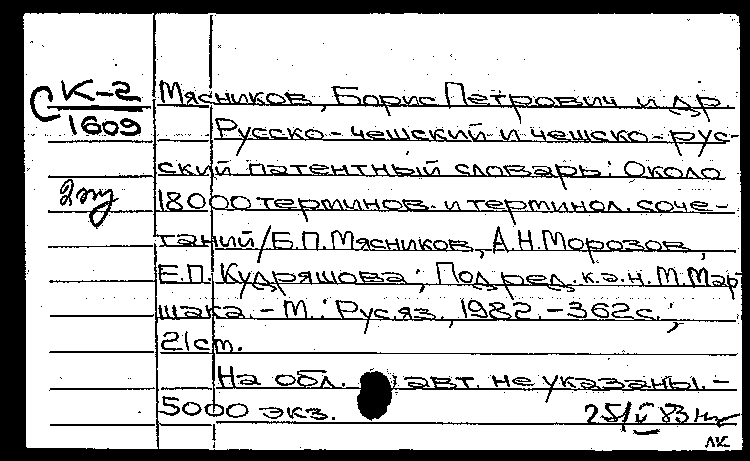 С К-2 Мясников, Борис Петрович и др
1609 Русско-чешский и чешско-рус-
ский патентный словарь: Около
2 экз 18000 терминов. и терминол. соче-
таний/Б.П.Мясников, А.Н.Морозов,
Е.П. Кудряшова; Под ред. к.э.н. М.Мар
шака. - М.: Рус.яз., 1982. - 362с.;
21см.
На обл. авт. не указаны. -
5000 экз.
25/V 83
лк